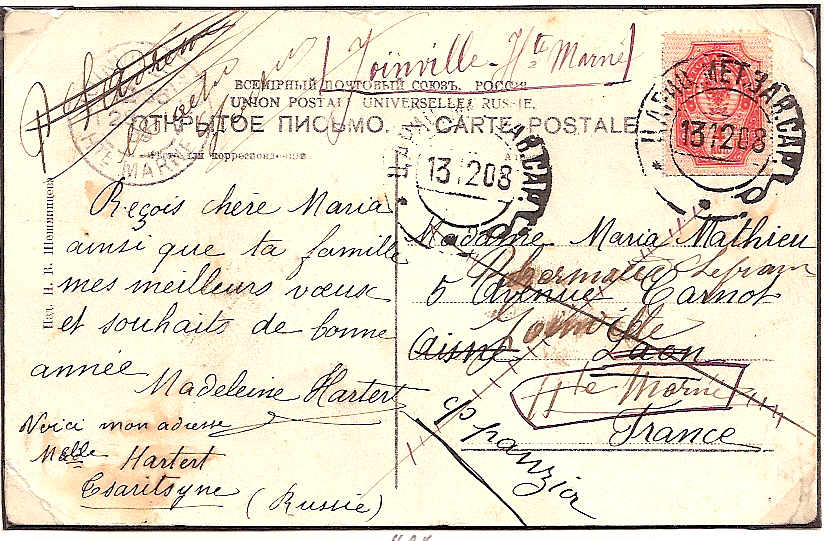 Joinville Hte Marne
ВСЕМІРНЫЙ ПОЧТОВЫЙ СОЮЗЪ. РОССІЯ
UNION POSTALE UNIVERSELLE. RUSSIE.
ОТКРЫТОЕ ПИСЬМО. CARTE POSTALE
Мѣсто для корреспонденціи
Reçois chère Maria
ainsi que ta famille
mes meilleurs vœux
et souhaits de bonne
année
Madeleine Hartert
Voici mon adresse
Melle Hartert
Tsaritsyne (Russie)
Изд. Н. В.
13 12 08
13 12 08
Madame Maria Mathieu
5 Avenue Carnot
Joinville
Aisne Laon
Hte Marne
France